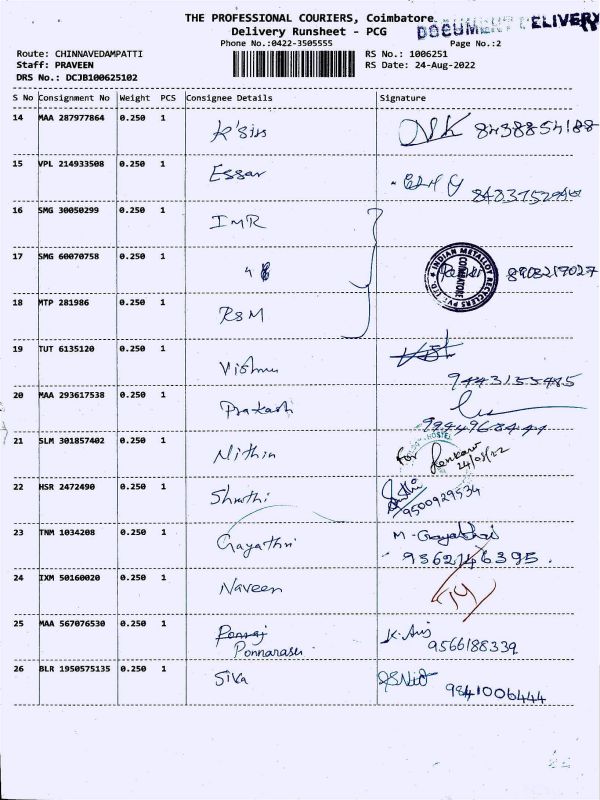 THE PROFESSIONAL COURIERS, Coimbatore
DOCUMENT DELIVERY
Delivery Runsheet - PCG
Phone No.:0422-3505555
Page No.:2
Route: CHINNAVEDAMPATTI
RS No.: 1006251
Staff: PRAVEEN
RS Date: 24-Aug-2022
DRS No.: DCJB100625102
S No Consignment No Weight PCS Consignee Details Signature
14 MAA 287977864 0.250 1 K'sins 8438854188
15 VPL 214933508 0.250 1 Essar
16 SMG 30050299 0.250 1 IMR
17 SMG 60070758 0.250 1 " INDIAN METALLOY RECYCLERS PVT. LTD. COIMBATORE 8903219027
18 MTP 281986 0.250 1 RSM
19 TUT 6135120 0.250 1 Vishnu 9443155485
20 MAA 293617538 0.250 1 Prakash
21 SLM 301857402 0.250 1 Nithin HOSTEL For 24/08/22
22 HSR 2472490 0.250 1 Shruthi 9500929534
23 TNM 1034208 0.250 1 Gayathri M-Gayathri
9362146395.
24 IXM 50160020 0.250 1 Naveen
25 MAA 567076530 0.250 1 Ponraj K.
Ponnarasu 9566188339
26 BLR 1950575135 0.250 1 Siva 9841006444